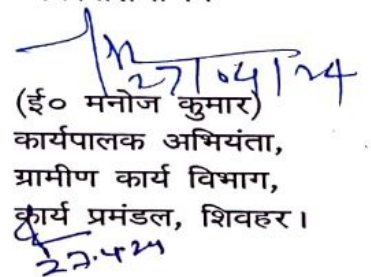 27/04/24
(ई० मनोज कुमार)
कार्यपालक अभियंता,
ग्रामीण कार्य विभाग,
कार्य प्रमंडल, शिवहर।
27.4.24